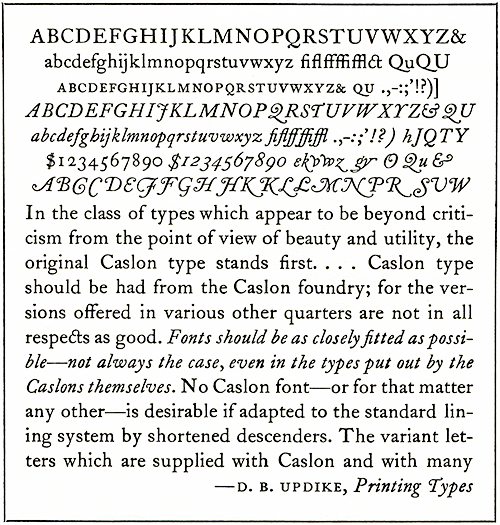 ABCDEFGHIJKLMNOPQRSTUVWXYZ&
abcdefghijklmnopqrstuvwxyz fiflffffifflct QuQU
ABCDEFGHIJKLMNOPQRSTUVWXYZ& QU .,-:;'!?)]
ABCDEFGHIJKLMNOPQRSTUVWXYZ& QU
abcdefghijklmnopqrstuvwxyz fiflffffiffl .,-:;'!?) hJQTY
$1234567890 $1234567890 ekvwz gy O Qu &
ABCCDEFFGHHKKLLMNPRSUW
In the class of types which appear to be beyond criti-
cism from the point of view of beauty and utility, the
original Caslon type stands first. . . . Caslon type
should be had from the Caslon foundry; for the ver-
sions offered in various other quarters are not in all
respects as good. Fonts should be as closely fitted as possi-
ble—not always the case, even in the types put out by the
Caslons themselves. No Caslon font—or for that matter
any other—is desirable if adapted to the standard lin-
ing system by shortened descenders. The variant let-
ters which are supplied with Caslon and with many
—D. B. UPDIKE, Printing Types